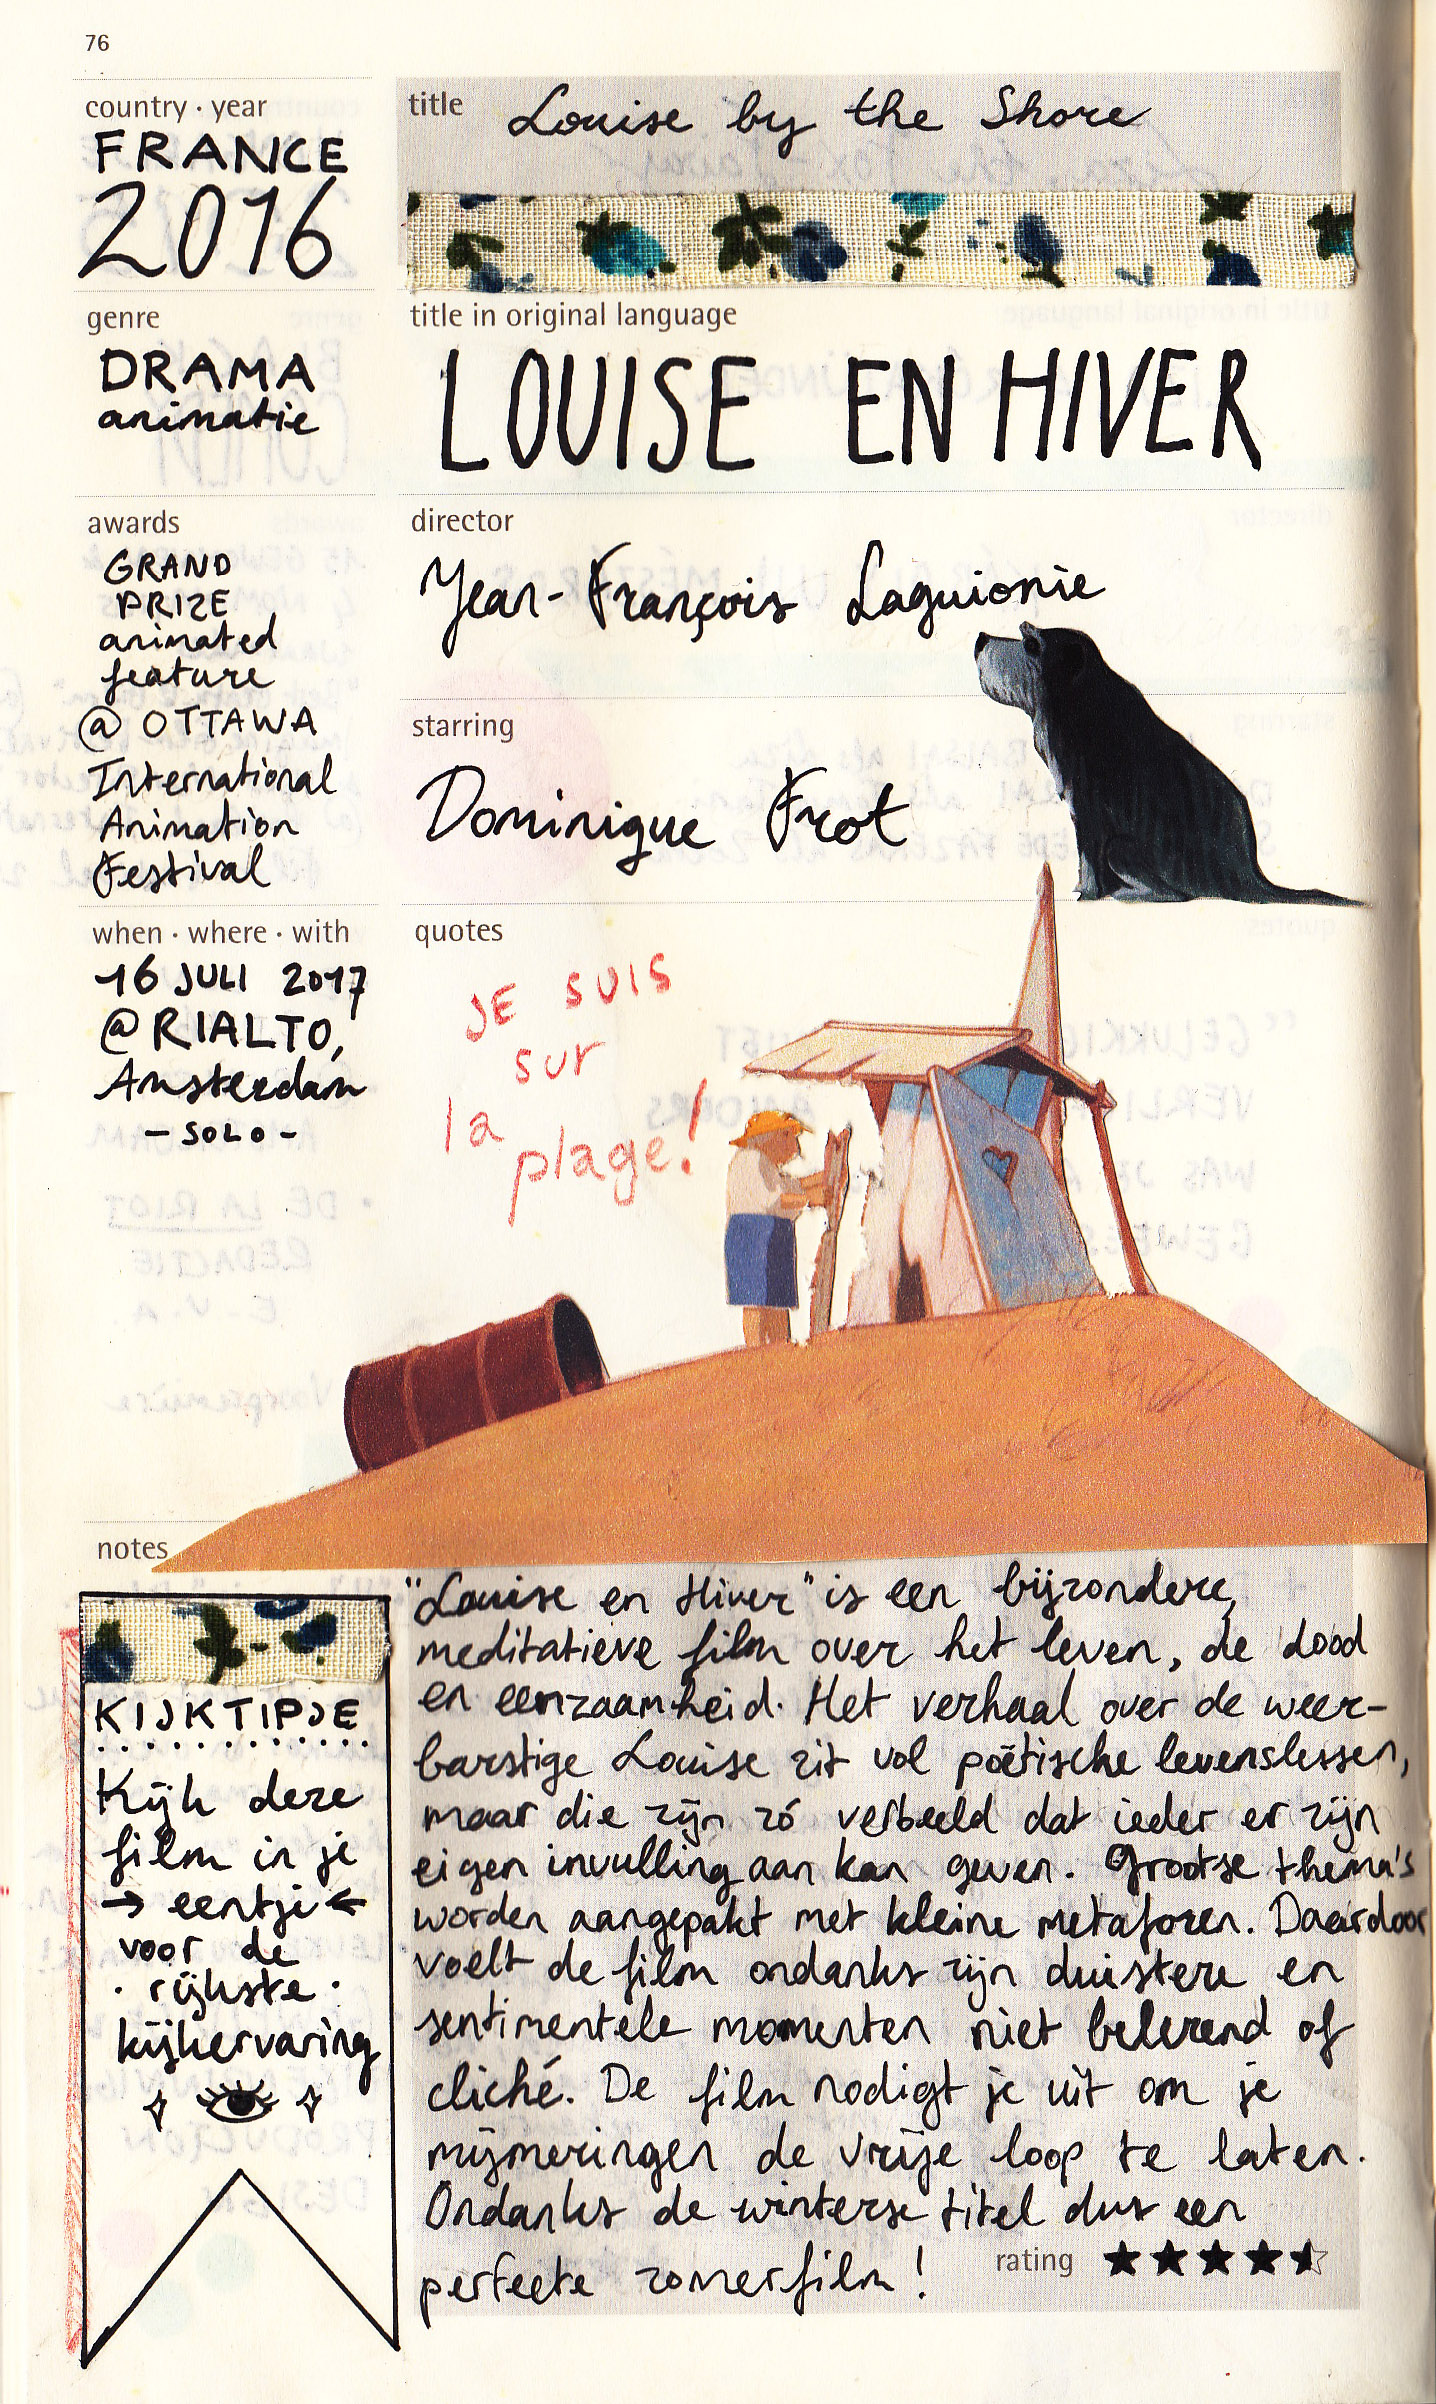 76
country · year
FRANCE
2016
title
Louise by the Shore
genre
DRAMA
animatie
title in original language
LOUISE EN HIVER
awards
GRAND
PRIZE
animated
feature
@ OTTAWA
International
Animation
Festival
director
Jean-François Laguionie
starring
Dominique Frot
when · where · with
16 JULI 2017
@ RIALTO,
Amsterdam
- SOLO -
quotes
JE SUIS
sur
la
plage!
notes
KIJKTIPJE
Kijk deze
film in je
→ eentje ←
voor de
· rijkste ·
kijkervaring
"Louise en Hiver" is een bijzondere,
meditatieve film over het leven, de dood
en eenzaamheid. Het verhaal over de weer-
barstige Louise zit vol poëtische levenslessen,
maar die zijn zó verbeeld dat ieder er zijn
eigen invulling aan kan geven. Grootse thema's
worden aangepakt met kleine metaforen. Daardoor
voelt de film ondanks zijn duistere en
sentimentele momenten niet belerend of
cliché. De film nodigt je uit om je
mijmeringen de vrije loop te laten.
Ondanks de winterse titel dus een
perfecte zomerfilm!
rating